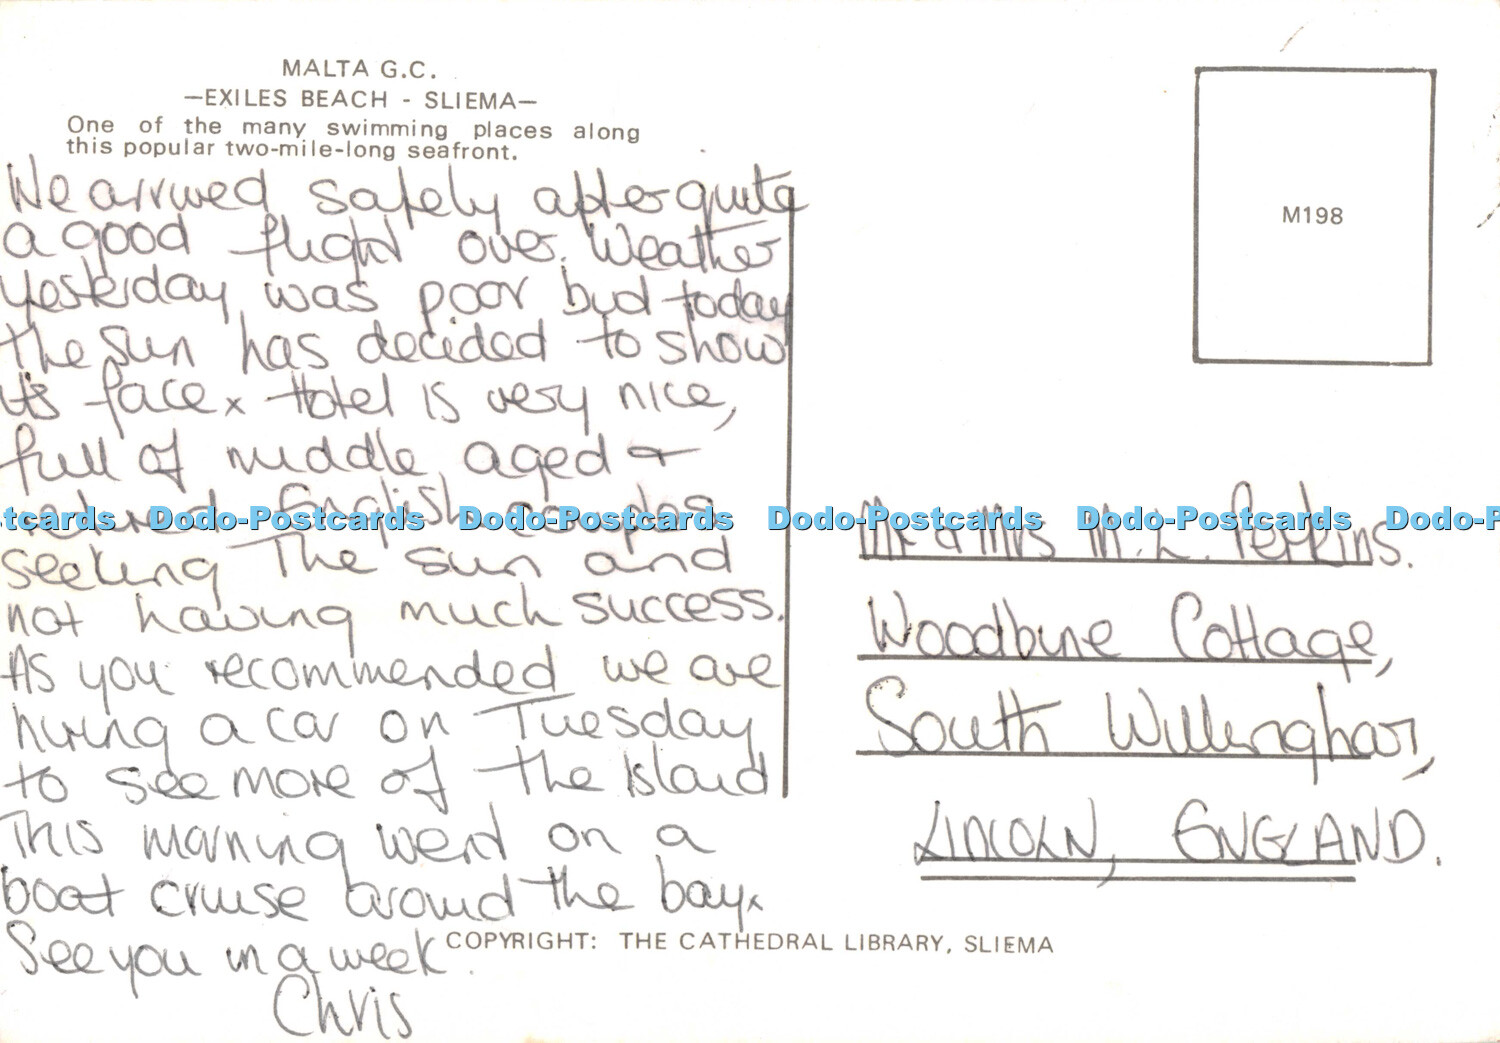 MALTA G.C.
—EXILES BEACH - SLIEMA—
One of the many swimming places along
this popular two-mile-long seafront.
We arrived safely after quite
a good flight over. Weather
yesterday was poor but today
the sun has decided to show
its face x Hotel is very nice,
full of middle aged +
retired English couples
seeking the sun and
not having much success.
As you recommended we are
hiring a car on Tuesday
to see more of the island
This morning went on a
boat cruise around the bay x
See you in a week.
Chris
COPYRIGHT: THE CATHEDRAL LIBRARY, SLIEMA
M198
Mr & Mrs M. L. Perkins.
Woodbine Cottage,
South Willingham,
LINCOLN, ENGLAND.
Dodo-Postcards Dodo-Postcards Dodo-Postcards Dodo-Postcards